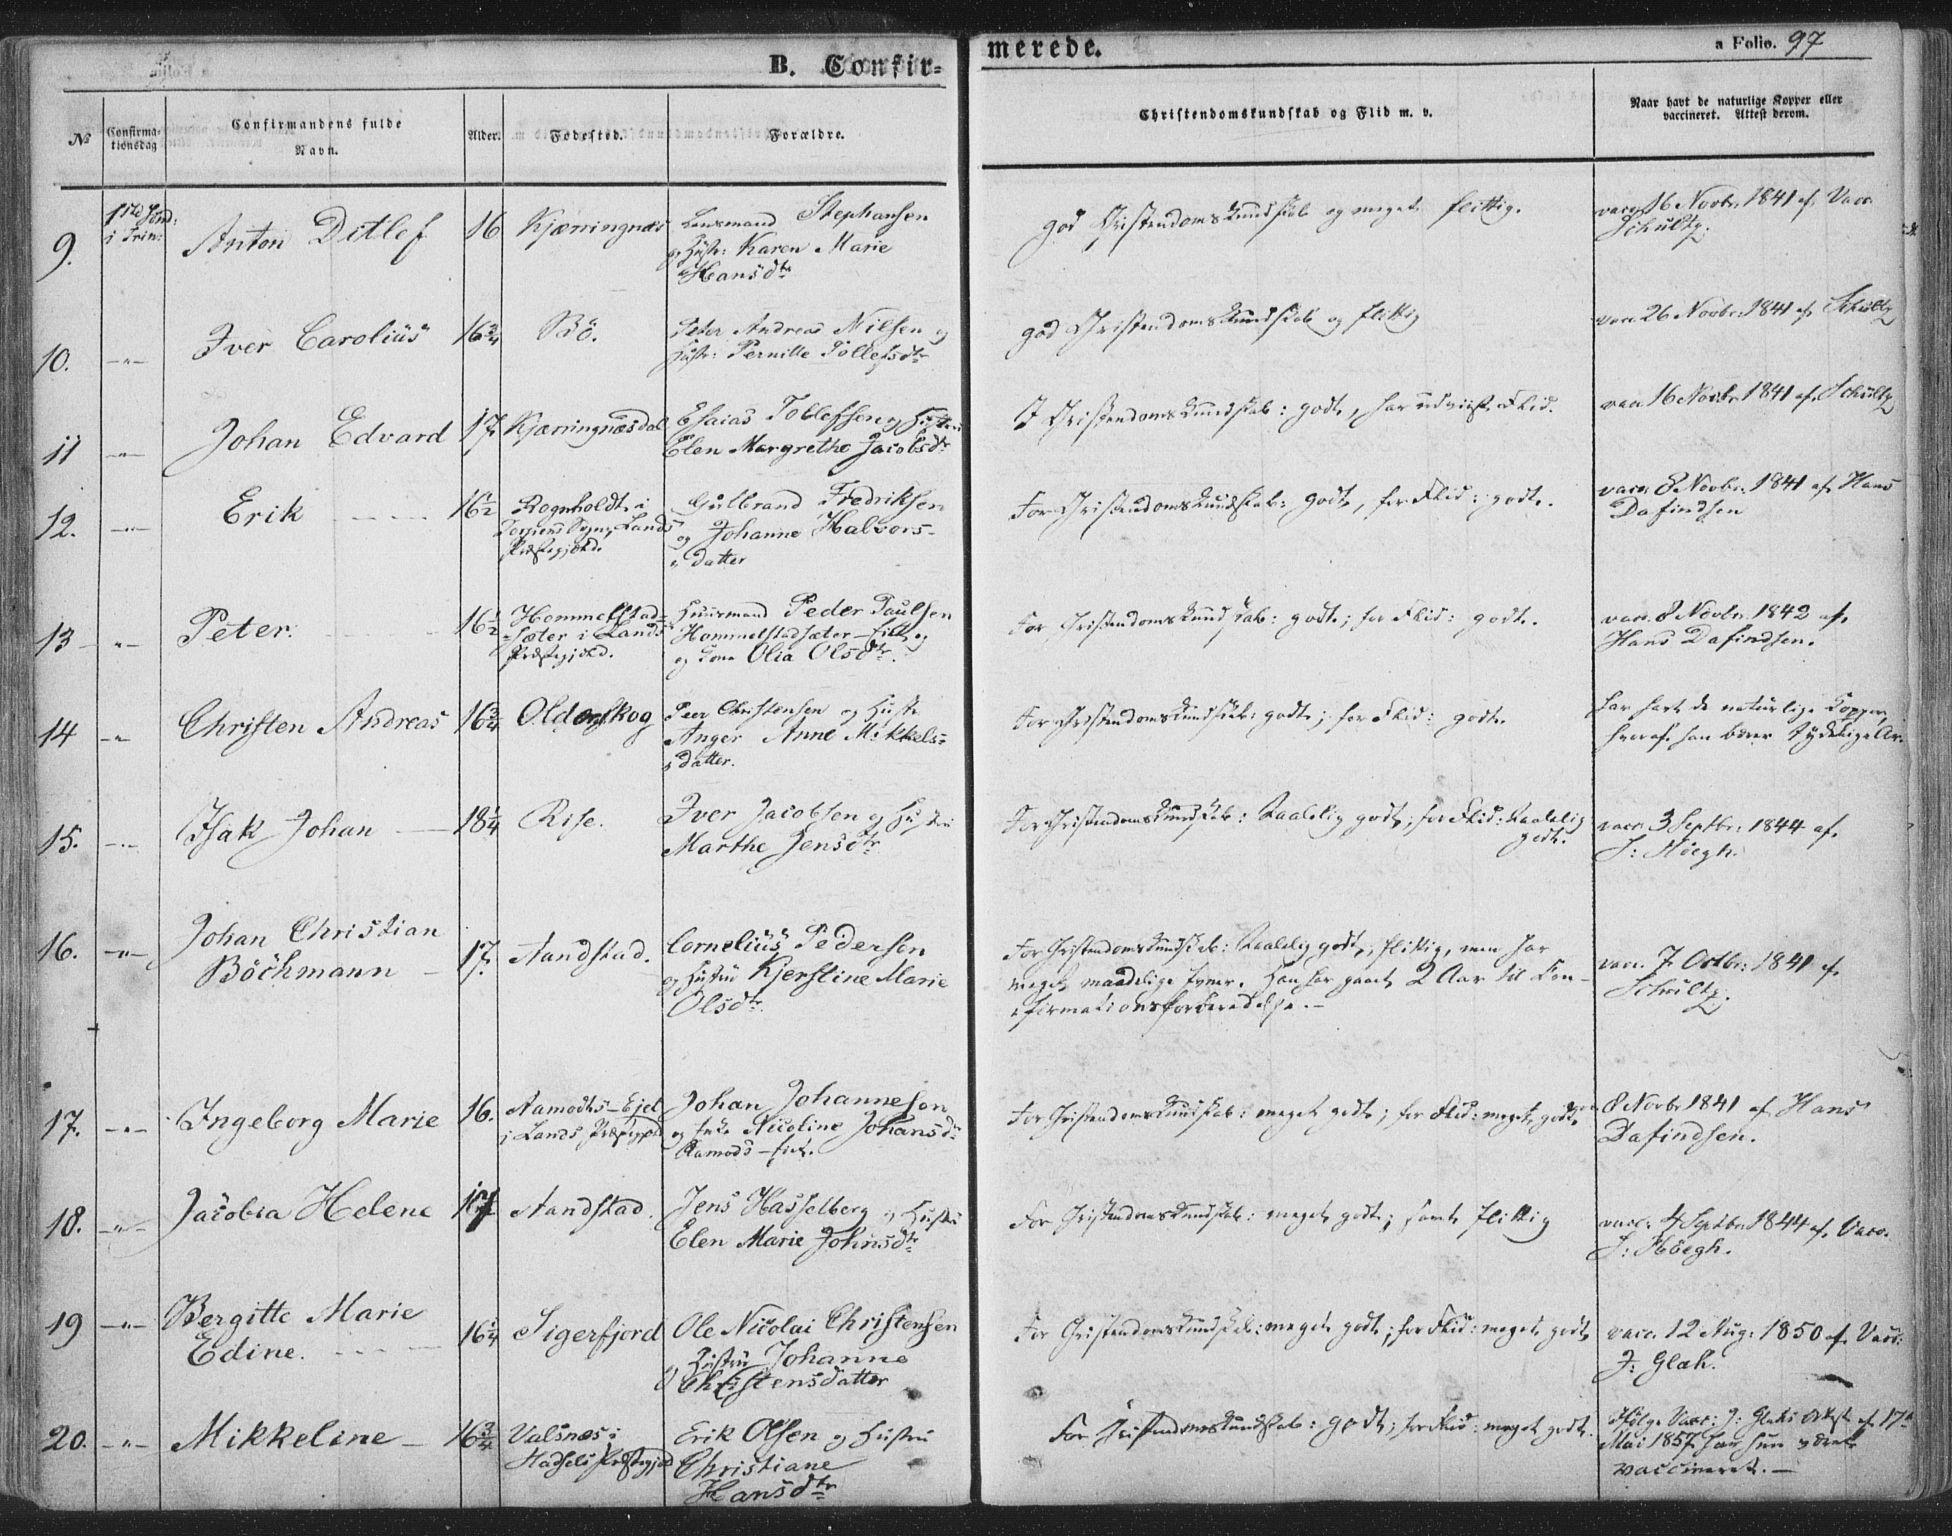 B. Confir-
merede.
a Folio. 97
No
Confirma-
tionsdag
Confirmandens fulde
Navn.
Alder.
Fødested.
Forældre.
Christendomskundskab og Flid m. v.
Naar havt de naturlige Kopper eller
vaccineret. Attest derom.
9.
1ste Sønd:
i Trin:
Anton Ditlef
16
Kjærringnæs
Lensmand Stephansen
og Hustr: Karen Marie
Hansdtr
god Christendomskundskab og meget flittig.
vacc. 16 Novbr. 1841 af Vacc.
Schultz.
10.
-"-
Iver Carolius
16 3/4
Bö.
Peter Andreas Nilsen og
Hustr: Pernille Tollefsdtr
god Christendomskundskab og flittig
vacc. 26 Novbr. 1841 af Schultz
11
-"-
Johan Edvard
17
Kjærringnæsdal
Esaias Tollefsen og Hustru
Elen Margrethe Jacobsdtr
I Christendomskundskab: godt, har udviist Flid.
vacc 16 Novbr. 1841 af Schultz
12.
-"-
Erik
16 1/2
Rognholdt i
Lands
Præstegjeld.
Gulbrand Fredriksen
og Johanne Halvors-
datter
For Christendomskundskab: godt, for Flid: godt.
vacc. 8 Novbr. 1841 af Hans
Dafindsen
13
-"-
Peter.
16 1/2
Hommelstad-
sæter i Lands
Præstegjeld.
Huusmand Peder Paulsen
Hommelstadsæter-
og Kone Olia Olsdtr.
For Christendomskundskab: godt; for Flid: godt.
vacc. 8 Novbr. 1842 af
Hans Dafindsen.
14
-"-
Christen Andreas
16 3/4
Olderskog
Peer Christensen og Hustr
Anger Anne Mikkels-
datter.
For Christendomskundskab: godt; for Flid: godt.
har havt de naturlige Kopper,
hvoraf han bærer tydelige Ar.
15.
-"-
Isak Johan
18 1/4
Rise.
Iver Jacobsen og Hustru
Marthe Jensdtr
For Christendomskundskab: Taalelig godt; for Flid: Taalelig
godt.
vacc. 3 Septbr. 1844 af
J: Höegh.
16.
-"-
Johan Christian
Böckmann
17.
Sandstad.
Cornelius Pedersen
og Hustru Kjerstine Marie
Olsdtr.
For Christendomskundskab: Taalelig godt, flittig, men har
meget maadelige Evner. Han har gaaet 2 Aar til Con-
firmationsforberedelse.-
vacc. 7 Octbr. 1841 af
Schultz.
17.
-"-
Ingeborg Marie
16.
Aamodts-Ejet
i Lands Præstegjeld
Johan Johannesen
og Nicoline Johansdtr
Aamods-
For Christendomskundskab: meget godt; for Flid: meget godt.
8 Novbr 1841 af Hans
Dafindsen.
18.
-"-
Jacobia Helene
17
Sandstad.
Jens Hasselberg og Hustru
Elen Marie Johnsdtr
For Christendomskundskab: meget godt; samt flittig
vacc. 4 Septbr. 1844 af Vacc.
J: Höegh.
19
-"-
Bergitte Marie
Edine.
16 1/4
Sigerfjord
Ole Nicolai Christensen
og Hustru Johanne
Christensdatter
For Christendomskundskab: meget godt; for Flid: meget godt
vacc. 12 Aug. 1850 af Vacc:
J: Glah.
20.
-"-
Mikkeline
16 3/4
Valsnæs i
Hadsels Præstegjeld
Erik Olsen og Hustru
Christiane
Hansdtr
For Christendomskundskab: godt; for Flid: meget godt.
Ifølge Vacc: J: Glahs Attest af 17de
Mai 1857 har hun været
vaccineret.-